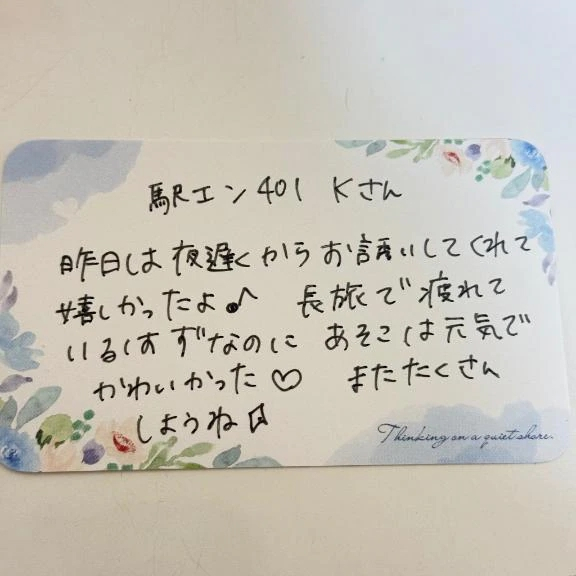 駅エン401 Kさん
昨日は夜遅くからお誘いしてくれて
嬉しかったよ♪ 長旅で疲れて
いるはずなのに あそこは元気で
かわいかった♡ またたくさん
しようね
Thinking on a quiet shore.